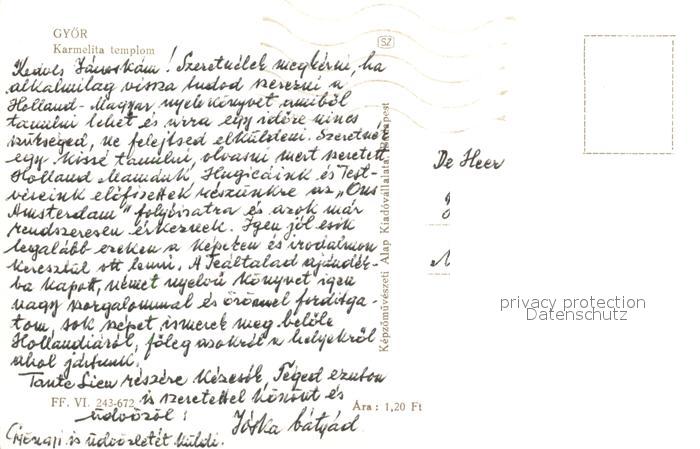 GYŐR
Karmelita templom
SZ
Kedves Jánoskám! Szeretnélek megkérni, ha
alkalmilag vissza tudod szerezni a
Holland-Magyar nyelvkönyvet amiből
tanulni lehet és arra egy időre nincs
szükséged, ne felejtsed elküldeni. Szeretnék
egy kissé tanulni, olvasni mert szeretett
Holland Mamánk Hugicáink és Test-
véreink előfizettek részünkre az „Ons
Amsterdam" folyóiratra és azok már
rendszeresen érkeznek. Igen jól esik
legalább ezeken a képeken és irodalmon
keresztül ott lenni. A Teáltalad ajándék-
ba kapott, német nyelvű könyvet igen
nagy szorgalommal és örömmel fordítga-
tom, sok szépet ismerek meg belőle
Hollandiáról, főleg azokról a helyekről
ahol jártunk.
Tante Lien részére kézcsók, Téged ezuton
is szeretettel köszönt és
üdvözöl:
Jóska bátyád
is üdvözletét küldi.
FF. VI. 243-672
Ára: 1,20 Ft
Képzőművészeti Alap Kiadóvállalata, Budapest
De Heer
privacy protection
Datenschutz